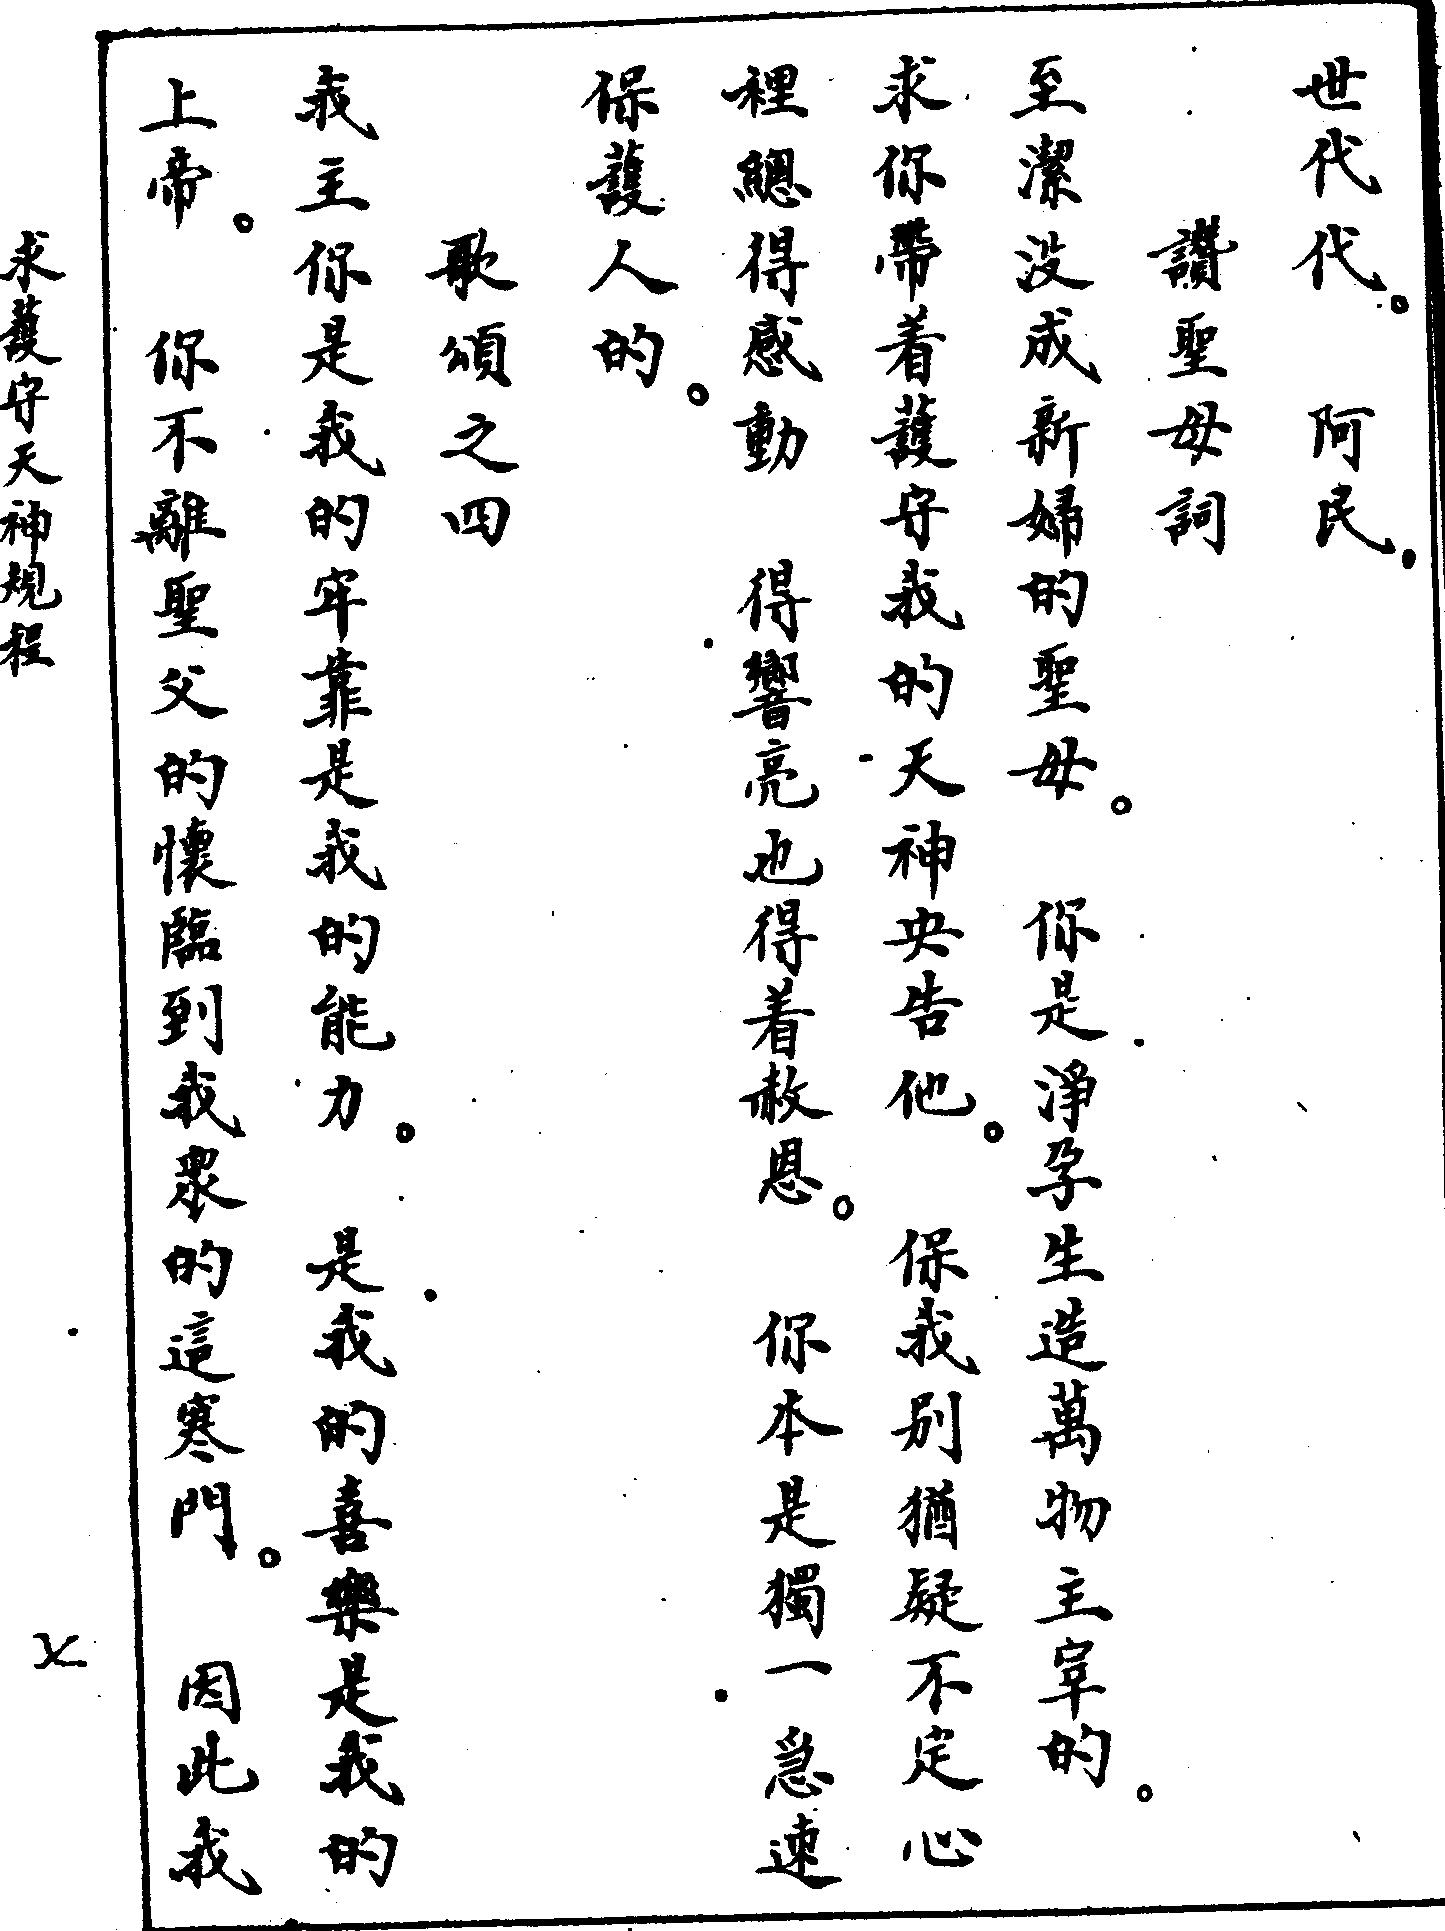 世代代。 阿民.
讚聖母詞
至潔没成新婦的聖母。 你是淨孕生造萬物主宰的。
求你帶着護守我的天神央告他。 保我别猶疑不定心
裡總得感動 得響亮也得着赦恩。 你本是獨一急速
保護人的。
歌頌之四
我主你是我的牢靠是我的能力。 是我的喜樂是我的
上帝。 你不離聖父的懷臨到我衆的這寒門。 因此我
求護守天神規程